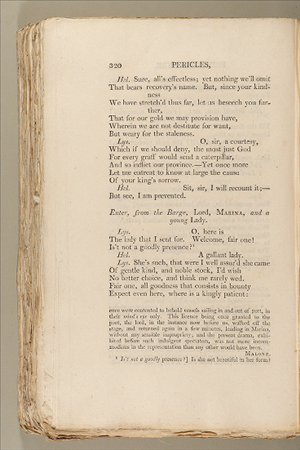 320 PERICLES,
Hel. Sure, all's effectless; yet nothing we'll omit
That bears recovery's name. But, since your kind-
ness
We have stretch'd thus far, let us beseech you fur-
ther,
That for our gold we may provision have,
Wherein we are not destitute for want,
But weary for the staleness.
Lys. O, sir, a courtesy,
Which if we should deny, the most just God
For every graff would send a caterpillar,
And so inflict our province.—Yet once more
Let me entreat to know at large the cause
Of your king's sorrow.
Hel. Sit, sir, I will recount it;—
But see, I am prevented.
Enter, from the Barge, Lord, MARINA, and a
young Lady.
Lys. O, here is
The lady that I sent for. Welcome, fair one!
Is't not a goodly presence?
Hel. A gallant lady.
Lys. She's such, that were I well assur'd she came
Of gentle kind, and noble stock, I'd wish
No better choice, and think me rarely wed.
Fair one, all goodness that consists in bounty
Expect even here, where is a kingly patient:
ence were contented to behold vessels sailing in and out of port, in
their mind's eye only. This licence being once granted to the
poet, the lord, in the instance now before us, walked off the
stage, and returned again in a few minutes, leading in Marina,
without any sensible impropriety; and the present drama, exhi-
bited before such indulgent spectators, was not more incom-
modious in the representation than any other would have been.
MALONE.
Is't not a goodly presence?] Is she not beautiful in her form?